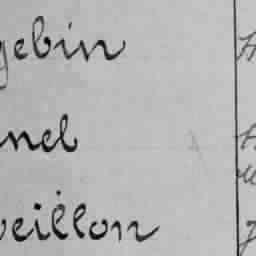 gebin
nel
veillon